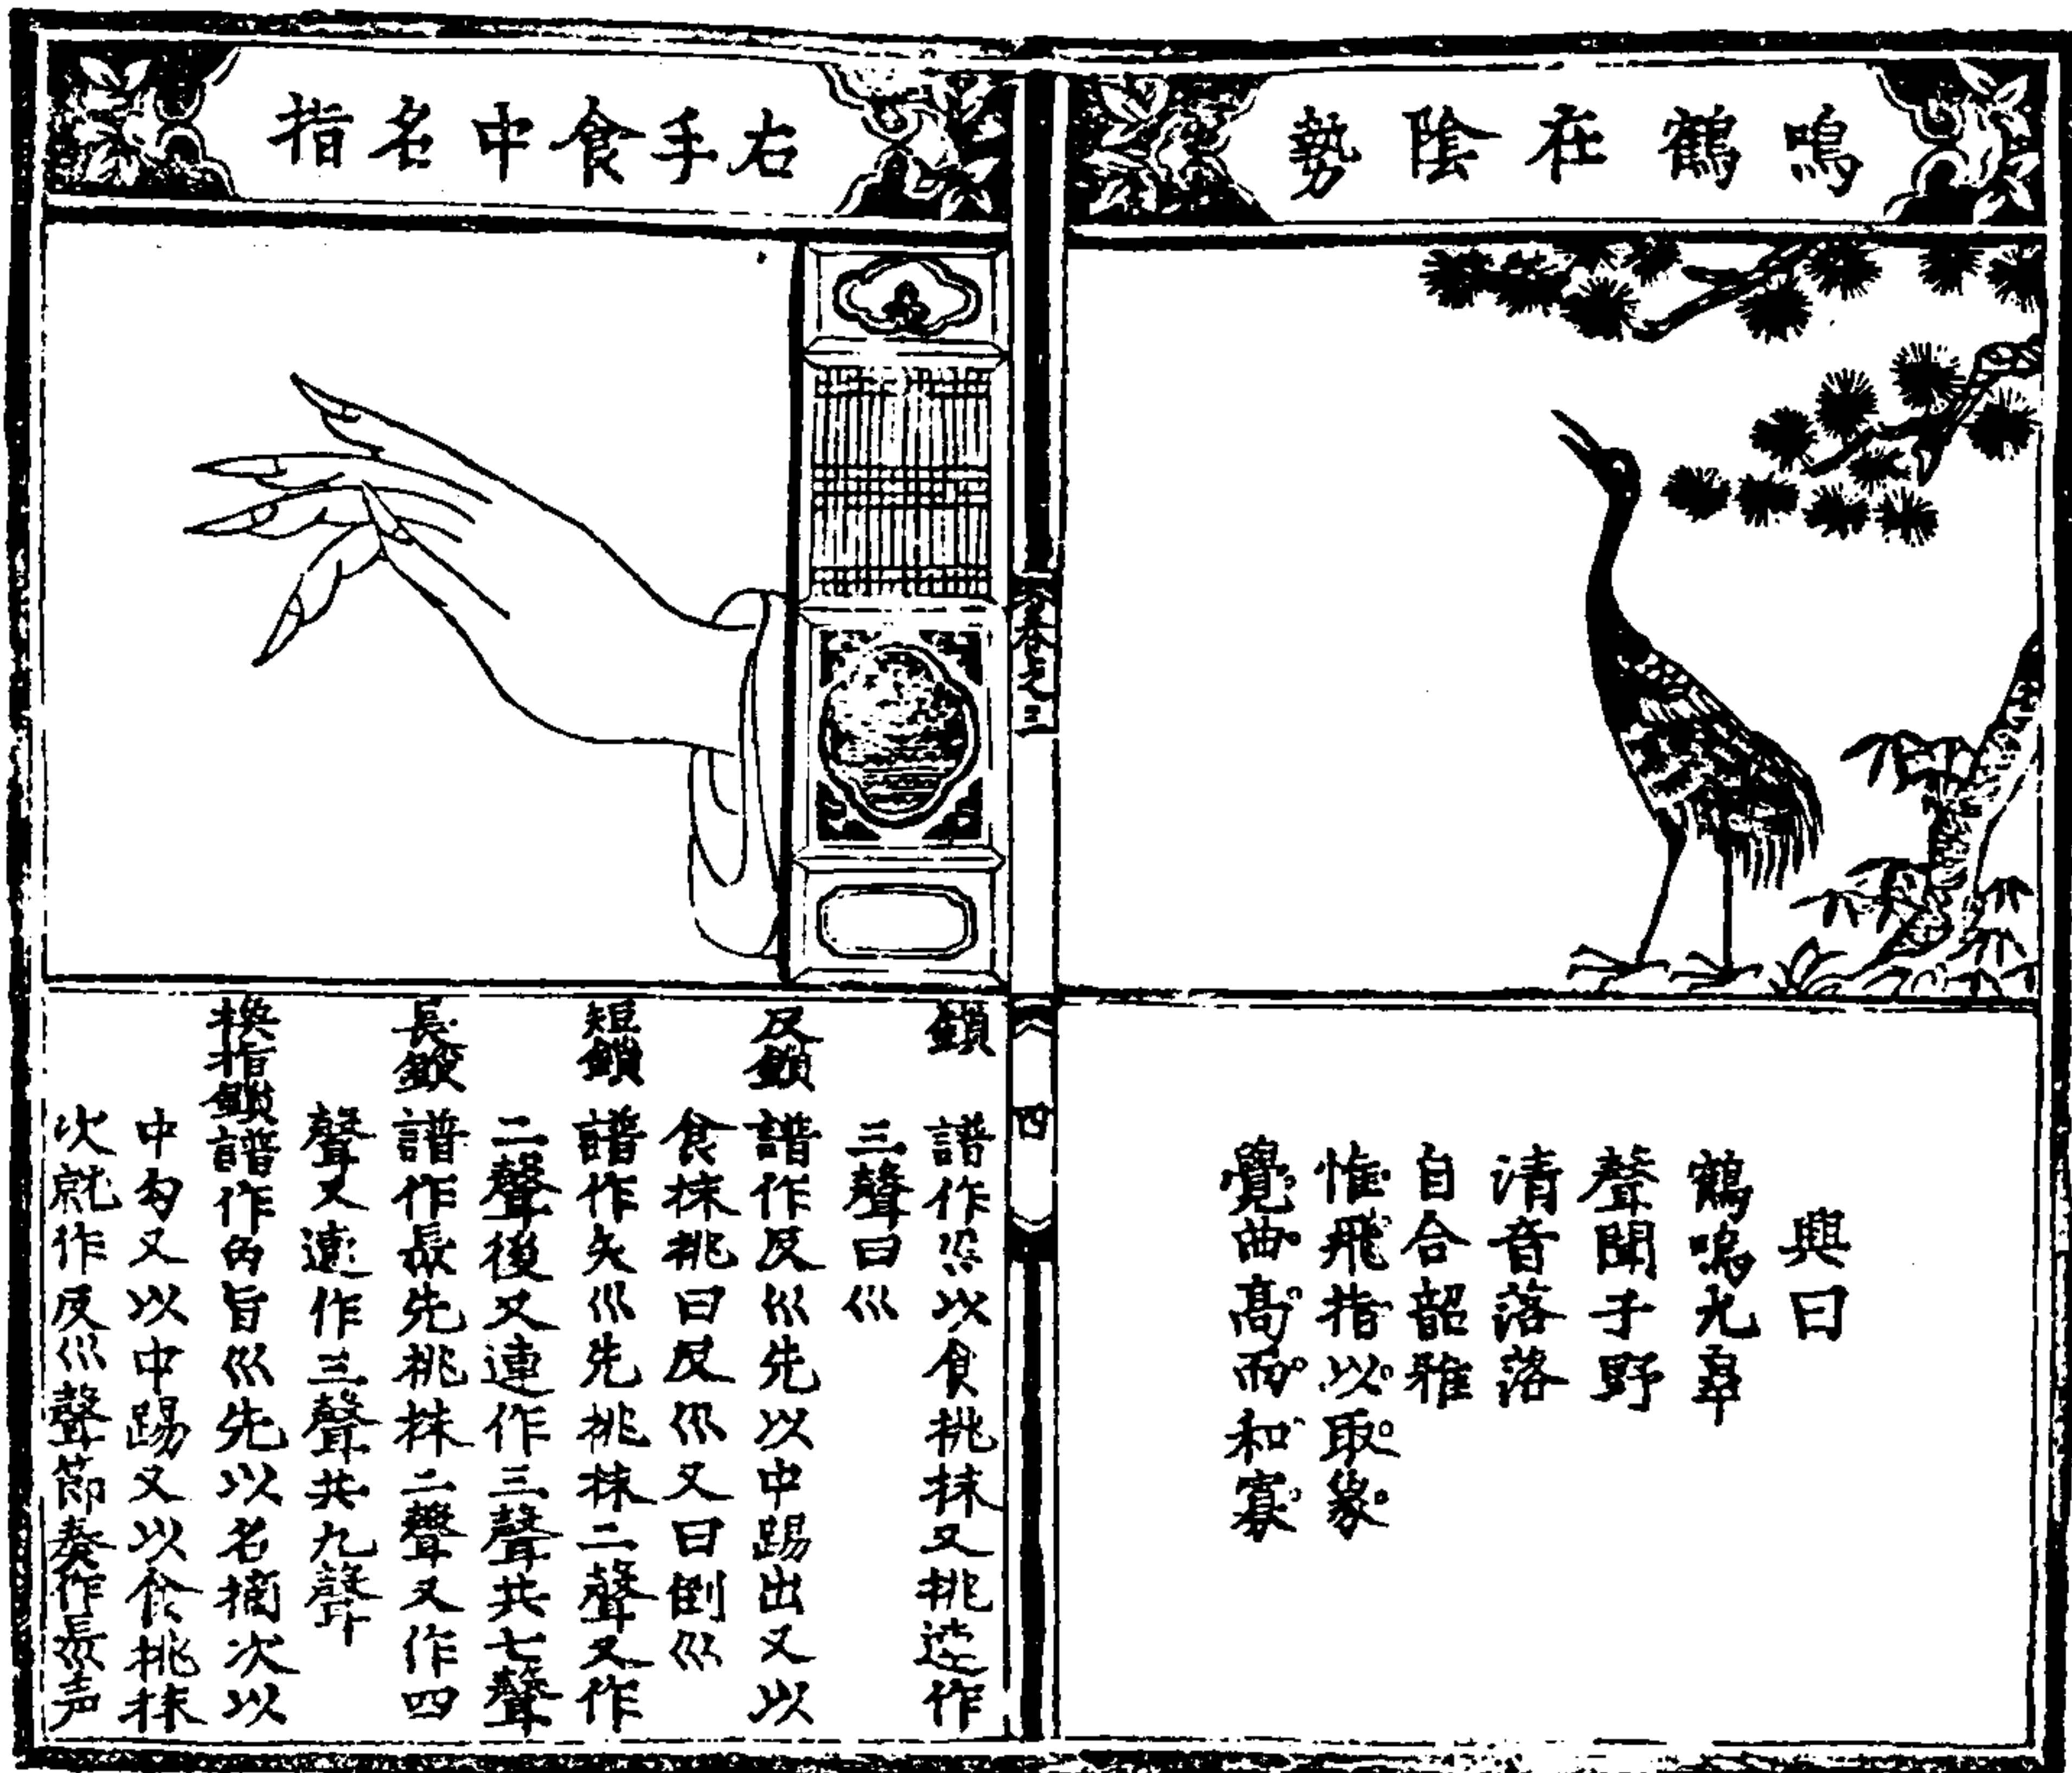 鳴鶴在陰勢
興曰
鶴鳴九皐
聲聞于野
清音落落
自合韶雅
惟飛指以取象
覺曲高而和寡
卷之三
四
右手食中名指
鎖 譜作巛以食挑抹又挑逵作
三聲曰巛
反鎖 譜作反巛先以中踢出又以
食抹挑曰反巛又曰倒巛
短鎖 譜作矢巛先挑抹二聲又作
二聲後又連作三聲共七聲
長鎖 譜作镸巛先挑抹二聲又作四
聲又連作三聲共九聲
換指鎖 譜作奂旨巛先以名摘次以
中勾又以中踢又以食挑抹
次就作反巛聲節奏作镸巛声